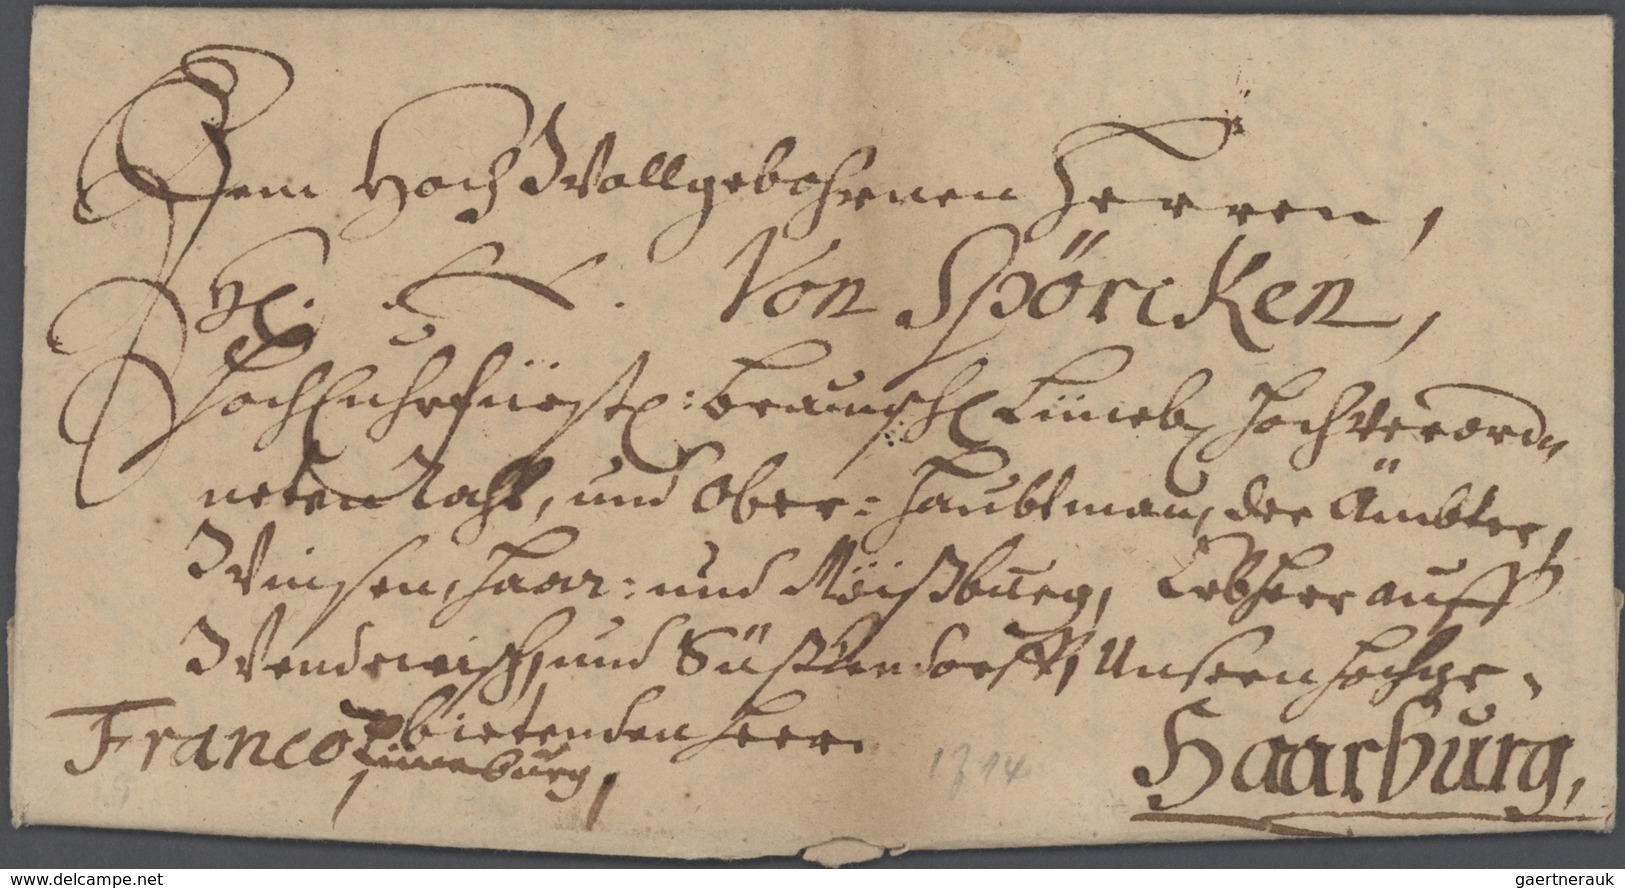 Dem Hoch Wollgebohrnen Herren,
H. Von Spörcken,
HochChurfürstl: Braunschl Lüneb Hochverord„
neten Raht, und Ober= Haubtman, der Ämbter,
Winsen, Haar: und Möißburg, Erbherr auff
Wendewisch, und Süstendorff, Unsern Hochge„
bietenden Herr.
Franco Lüneburg,
Haarburg,
1714
www.delcampe.net
gaertnerauk